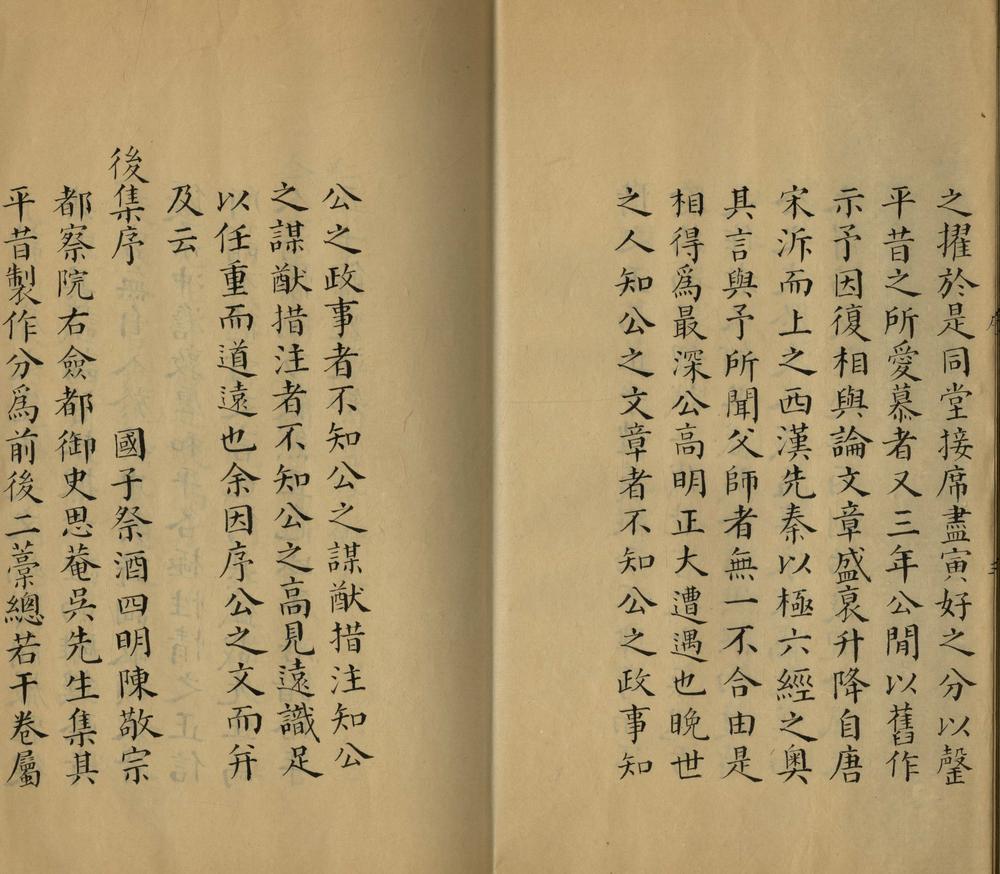 之擢於是同堂接席盡寅好之分以罄
平昔之所愛慕者又三年公閒以舊作
示予因復相與論文章盛衰升降自唐
宋泝而上之西漢先秦以極六經之奥
其言與予所聞父師者無一不合由是
相得爲最深公高明正大遭遇也晚世
之人知公之文章者不知公之政事知
公之政事者不知公之謀猷措注知公
之謀猷措注者不知公之高見遠識足
以任重而道遠也余因序公之文而并
及云
後集序 國子祭酒四明陳敬宗
都察院右僉都御史思菴吳先生集其
平昔製作分爲前後二藁總若干卷屬